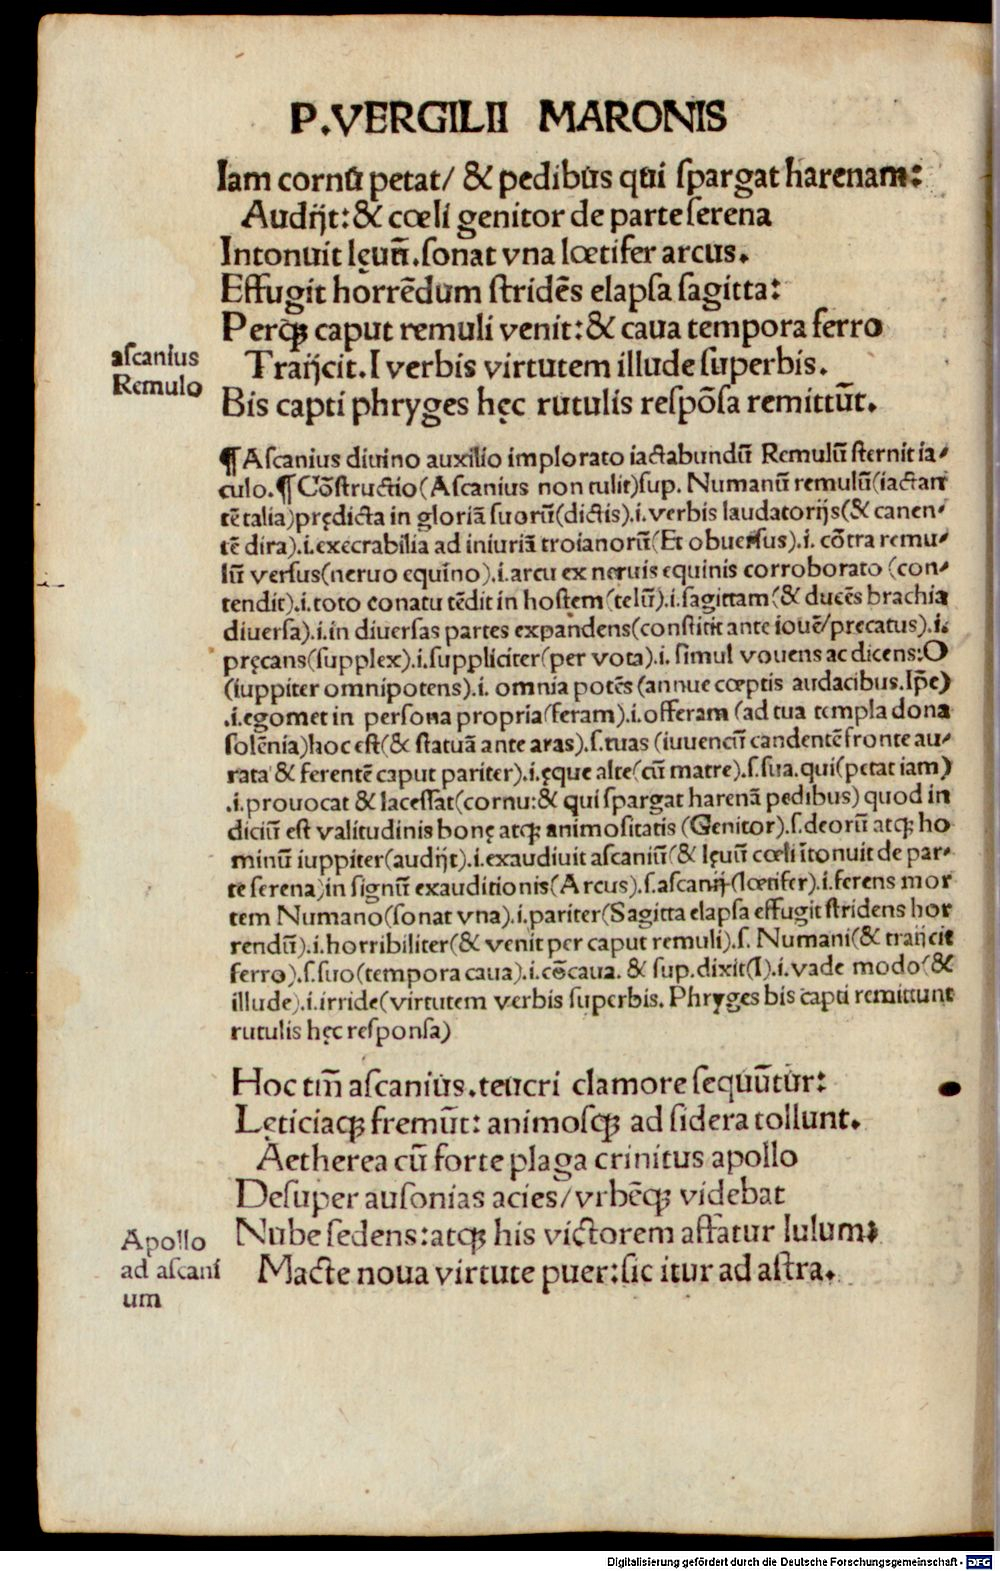 P.VERGILII MARONIS
Iam cornū petat/ & pedibus qui ſpargat harenam:
Audijt: & cœli genitor de parte ſerena
Intonuit lęuū. ſonat vna lœtifer arcus.
Effugit horrēdum ſtridēs elapſa ſagitta:
Perqꝫ caput remuli venit: & caua tempora ferro
ascanius
Remulo
Traijcit. I verbis virtutem illude ſuperbis.
Bis capti phryges hęc rutulis reſpōſa remittūt.
¶ Aſcanius diuino auxilio implorato iactabundū Remulū ſternit ia⸗
culo. ¶ Cōſtructio (Aſcanius non tulit) ſup. Numanū remulū (iactan
tē talia) prędicta in gloriā ſuorū (dictis) .i. verbis laudatorijs (& canen⸗
tē dira) .i. execrabilia ad iniuriā troianorū (Et obuerſus) .i. cōtra remu⸗
lū verſus (neruo equino) .i. arcu ex neruis equinis corroborato (con⸗
tendit) .i. toto conatu tēdit in hoſtem (telū) .i. ſagittam (& ducēs brachia
diuerſa) .i. in diuerſas partes expandens (conſtitit ante iouē/ precatus) .i.
pręcans (ſupplex) .i. ſuppliciter (per vota) .i. ſimul vouens ac dicens: O
(iuppiter omnipotens) .i. omnia potēs (annue cœptis audacibus. Ip̄e)
.i. egomet in perſona propria (feram) .i. offeram (ad tua templa dona
ſolēnia) hoc eſt (& ſtatuā ante aras) .ſ. tuas (iuuencū candentē fronte au⸗
rata & ferentē caput pariter) .i. ęque alte (cū matre) .ſ. ſua. qui (petat iam)
.i. prouocat & laceſſat (cornu: & qui ſpargat harenā pedibus) quod in
diciū eſt valitudinis bonę atqꝫ animoſitatis (Genitor) .ſ. deorū atqꝫ ho
minū iuppiter (audijt) .i. exaudiuit aſcaniū (& lęuū cœli ītonuit de par⸗
te ſerena) in ſignū exauditionis (Arcus) .ſ. aſcanij (lœtifer) .i. ferens mor
tem Numano (ſonat vna) .i. pariter (Sagitta elapſa effugit ſtridens hor
rendū) .i. horribiliter (& venit per caput remuli) .ſ. Numani (& traijcit
ferro) .ſ. ſuo (tempora caua) .i. cōcaua. & ſup. dixit (I) .i. vade modo (&
illude) .i. irride (virtutem verbis ſuperbis. Phryges bis capti remittunt
rutulis hęc reſponſa)
Hoc tm̄ aſcanius. teucri clamore ſequūtur:
Lęticiaqꝫ fremūt: animoſqꝫ ad ſidera tollunt.
Aetherea cū forte plaga crinitus apollo
Deſuper auſonias acies/ vrbēqꝫ videbat
Nube ſedens: atqꝫ his victorem affatur Iulum:
Apollo
ad aſcani
um
Macte noua virtute puer: ſic itur ad aſtra.
Digitalisierung gefördert durch die Deutsche Forschungsgemeinschaft - DFG